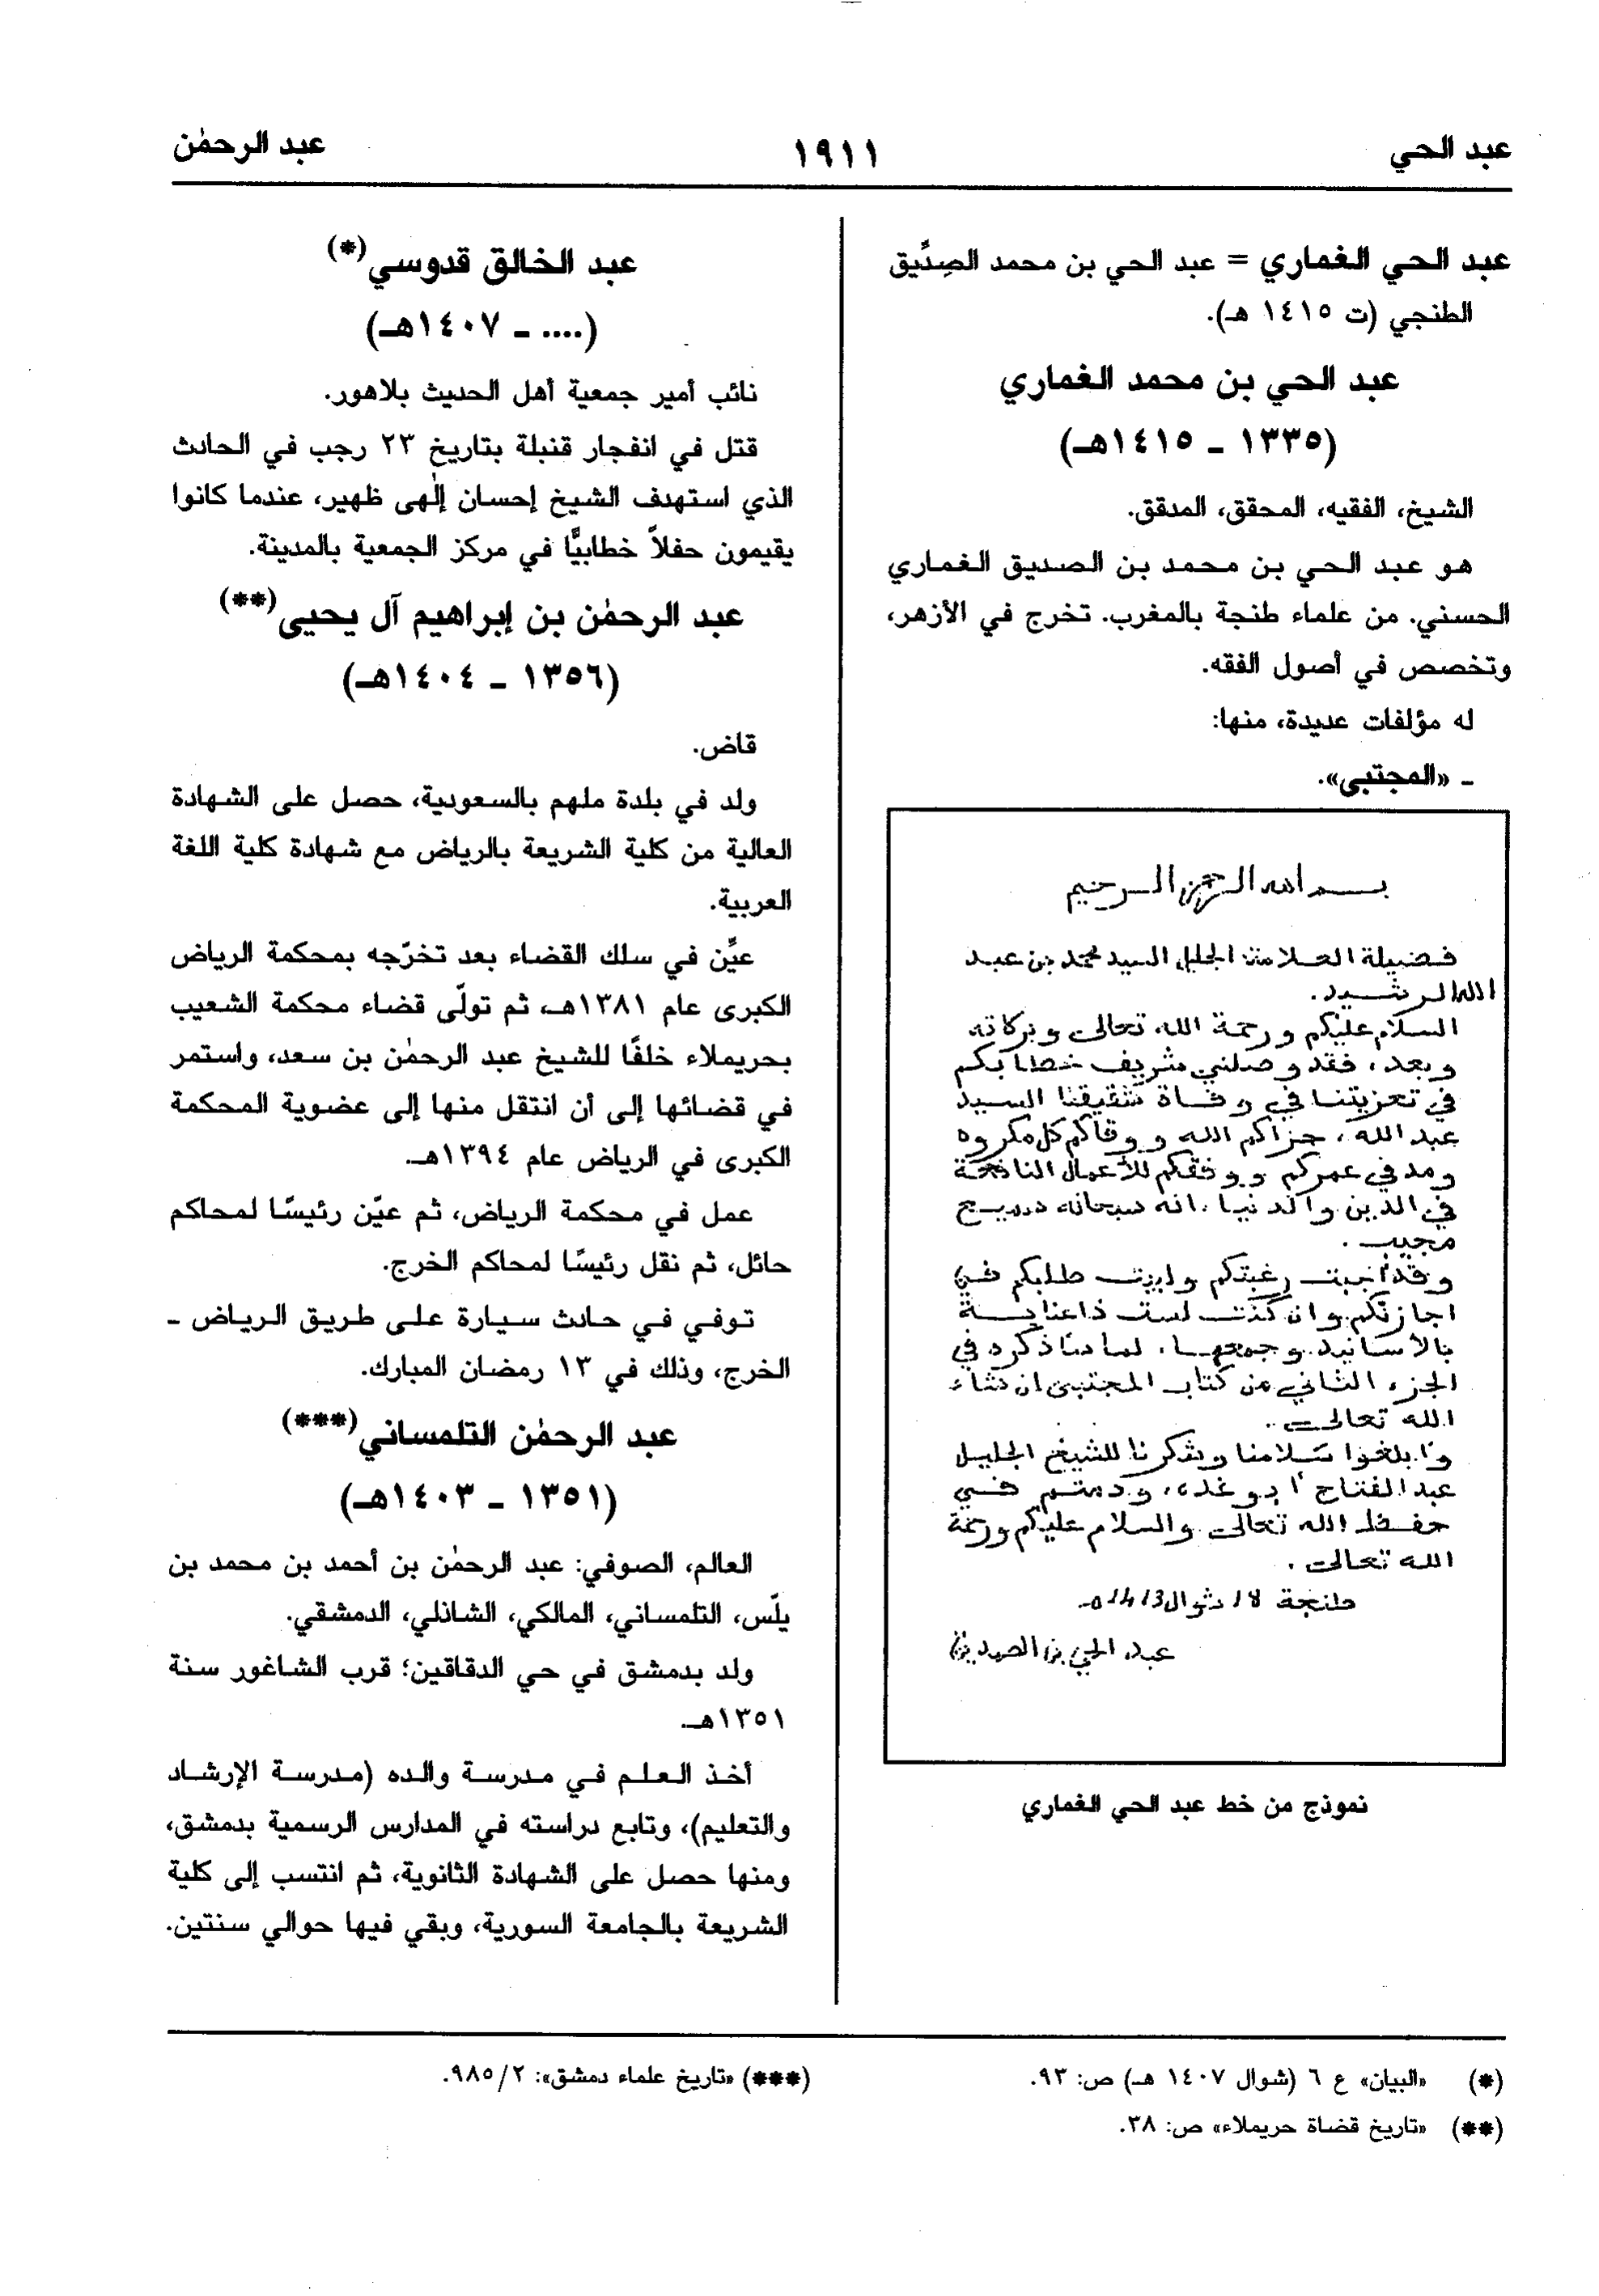 عبد الحي
١٩١١
عبد الرحمٰن
عبد الحي الغماري = عبد الحي بن محمد الصِدِّيق
الطنجي (ت ١٤١٥ هـ).
عبد الحي بن محمد الغماري
(١٣٣٥ ـ ١٤١٥هـ)
الشيخ، الفقيه، المحقق، المدقق.
هو عبد الحي بن محمد بن الصديق الغماري
الحسني. من علماء طنجة بالمغرب. تخرج في الأزهر،
وتخصص في أصول الفقه.
له مؤلفات عديدة، منها:
ـ «المجتبى».
بسم الله الرحمن الرحيم
فضيلة العلامة الجليل السيد محمد بن عبد
الله الرشيد.
السلام عليكم ورحمة الله تعالى وبركاته
وبعد، فقد وصلني شريف خطابكم
في تعزيتنا في وفاة شقيقنا السيد
عبد الله، جزاكم الله ووقاكم كل مكروه
ومد في عمركم ووفقكم للأعمال النافعة
في الدين والدنيا، انه سبحانه سميع
مجيب.
وقد أجبت رغبتكم ولبيت طلبكم في
اجازتكم وان كنت لست ذا عناية
بالأسانيد وجمعها، لما سأذكره في
الجزء الثاني من كتاب المجتبى ان شاء
الله تعالى.
وأبلغوا سلامنا وشكرنا للشيخ الجليل
عبد الفتاح أبو غدة، ودمتم في
حفظ الله تعالى والسلام عليكم ورحمة
الله تعالى.
طنجة 18 شوال 1413هـ
عبد الحي بن الصديق
نموذج من خط عبد الحي الغماري
عبد الخالق قدوسي(*)
(.... ـ ١٤٠٧هـ)
نائب أمير جمعية أهل الحديث بلاهور.
قتل في انفجار قنبلة بتاريخ ٢٣ رجب في الحادث
الذي استهدف الشيخ إحسان إلٰهي ظهير، عندما كانوا
يقيمون حفلاً خطابيًّا في مركز الجمعية بالمدينة.
عبد الرحمٰن بن إبراهيم آل يحيى(**)
(١٣٥٦ ـ ١٤٠٤هـ)
قاض.
ولد في بلدة ملهم بالسعودية، حصل على الشهادة
العالية من كلية الشريعة بالرياض مع شهادة كلية اللغة
العربية.
عيِّن في سلك القضاء بعد تخرّجه بمحكمة الرياض
الكبرى عام ١٣٨١هـ، ثم تولّى قضاء محكمة الشعيب
بحريملاء خلفًا للشيخ عبد الرحمٰن بن سعد، واستمر
في قضائها إلى أن انتقل منها إلى عضوية المحكمة
الكبرى في الرياض عام ١٣٩٤هـ.
عمل في محكمة الرياض، ثم عيّن رئيسًا لمحاكم
حائل، ثم نقل رئيسًا لمحاكم الخرج.
توفي في حادث سيارة على طريق الرياض ـ
الخرج، وذلك في ١٣ رمضان المبارك.
عبد الرحمٰن التلمساني(***)
(١٣٥١ ـ ١٤٠٣هـ)
العالم، الصوفي: عبد الرحمٰن بن أحمد بن محمد بن
يلّس، التلمساني، المالكي، الشاذلي، الدمشقي.
ولد بدمشق في حي الدقاقين؛ قرب الشاغور سنة
١٣٥١هـ.
أخذ العلم في مدرسة والده (مدرسة الإرشاد
والتعليم)، وتابع دراسته في المدارس الرسمية بدمشق،
ومنها حصل على الشهادة الثانوية، ثم انتسب إلى كلية
الشريعة بالجامعة السورية، وبقي فيها حوالي سنتين.
(*) «البيان» ع ٦ (شوال ١٤٠٧ هـ) ص: ٩٣.
(**) «تاريخ قضاة حريملاء» ص: ٣٨.
(***) «تاريخ علماء دمشق»: ٩٨٥/٢.